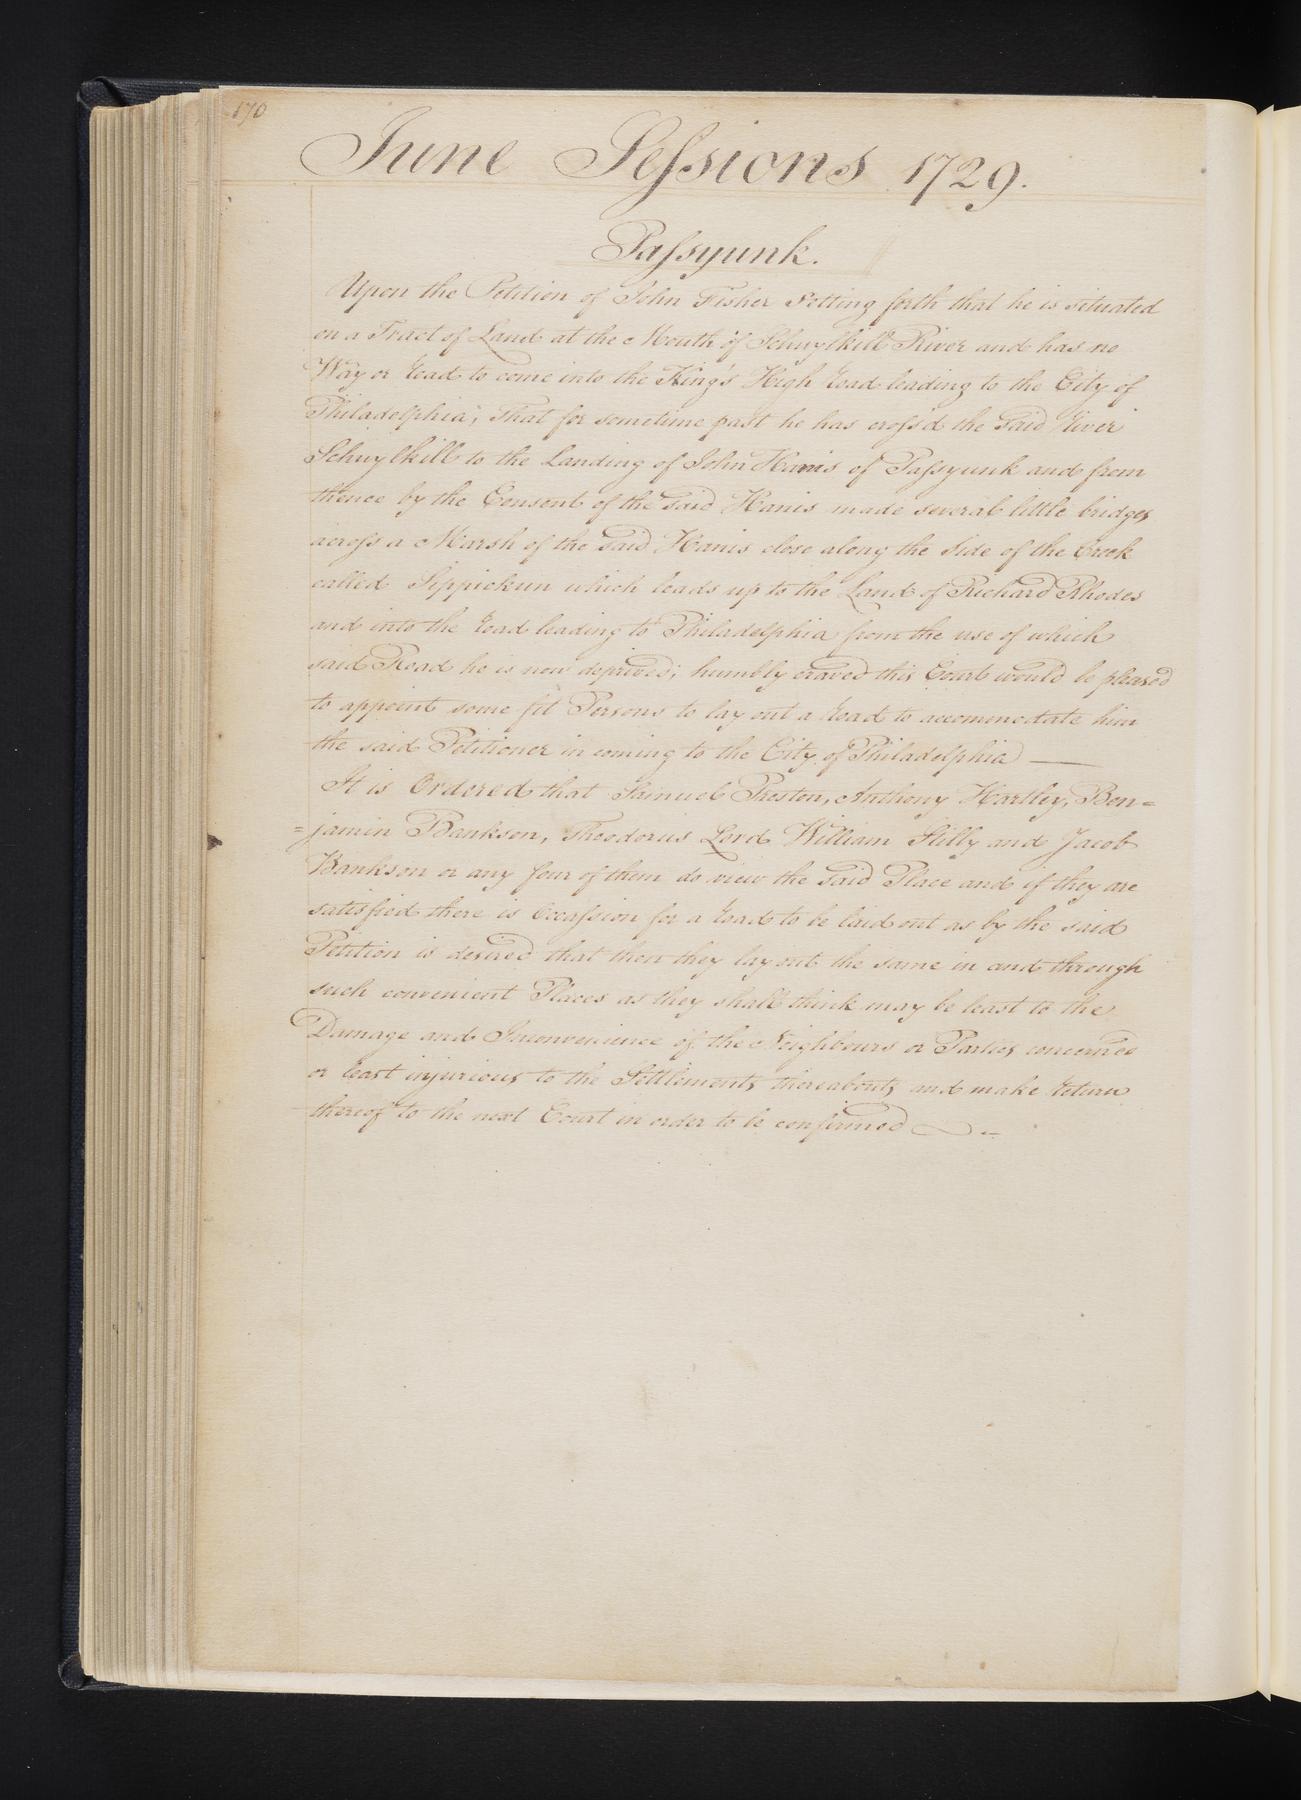 170
June Sessions 1729.
Passyunk.
Upon the Petition of John Fisher Setting forth that he is situated
on a Tract of Land at the Mouth of Schuylkill River and has no
Way or Road to come into the King's High Road leading to the City of
Philadelphia; That for sometime past he has cross'd the Said River
Schuylkill to the Landing of John Hanis of Passyunk and from
thence by the Consent of the Said Hanis made several little bridges
across a Marsh of the said Hanis close along the Side of the Creek
called Sippickun which leads up to the Land of Richard Rhodes
and into the Road leading to Philadelphia from the use of which
said Road he is now deprived; humbly craved this Court would be pleased
to appoint some fit Persons to lay out a Road to accommodate him
the said Petitioner in coming to the City of Philadelphia —
It is Ordered that Samuel Preston, Anthony Hartley, Ben=
=jamin Bankson, Theodorus Lord William Stilly and Jacob
Bankson or any four of them do view the said Place and if they are
satisfied there is Occassion for a Road to be laid out as by the said
Petition is desired that then they lay out the same in and through
such convenient Places as they shall think may be least to the
Damage and Inconvenience of the Neighbours or Parties concerned
or least injurious to the Settlements thereabouts and make Return
thereof to the next Court in order to be confirmed